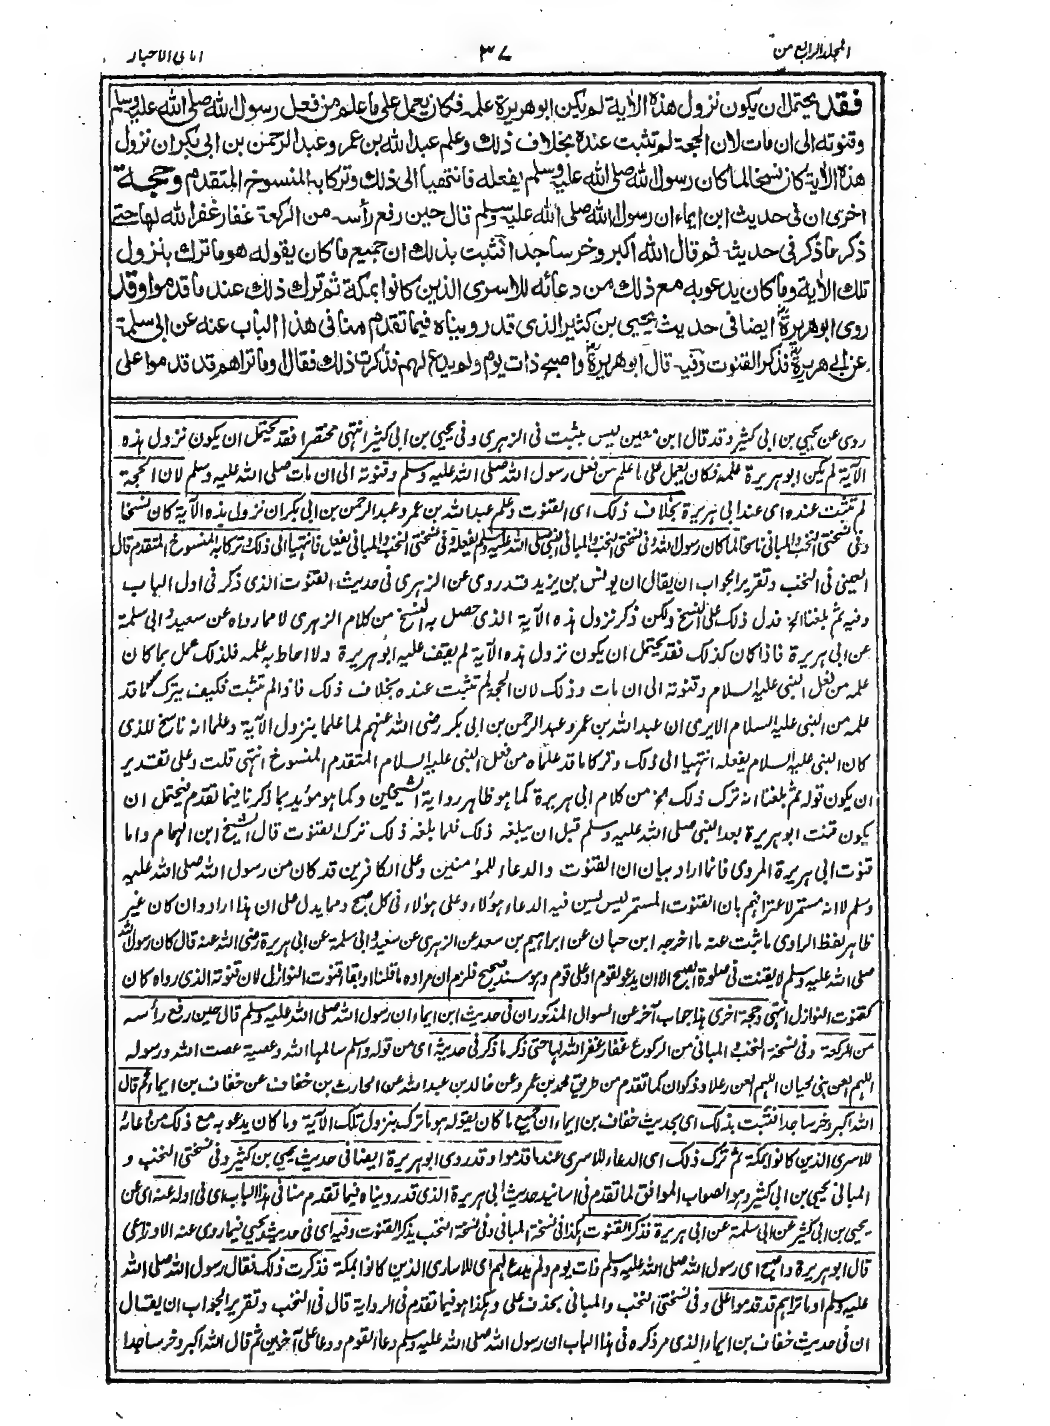 المجلد الرابع من
٣٧
امانی الاحبار
فقد يحتمل ان يكون نزول هذه الأية لم يكن ابو هريرة علمه فكان يعمل على ما علم من فعل رسول الله صلى الله عليه وسلم
وقنوته الى ان مات لان الحجة لم تثبت عنده بخلاف ذلك وعلم عبد الله بن عمر وعبد الرحمن بن ابى بكر ان نزول
هذه الأية كان نسخا لما كان رسول الله صلى الله عليه وسلم يفعله فانتهيا الى ذلك وتركا به المنسوخ المتقدم وحجة
اخرى ان فى حديث ابن ايماء ان رسول الله صلى الله عليه وسلم قال حين رفع رأسه من الركعة غفار غفر الله لها حتى
ذكر ما ذكر فى حديثه ثم قال الله اكبر وخر ساجدا فثبت بذلك ان جميع ما كان يقوله هو ما ترك بنزول
تلك الأية وما كان يدعو به مع ذلك من دعائه للاسرى الذين كانوا بمكة ثم ترك ذلك عند ما قدموا وقد
روى ابو هريرة ايضا فى حديث يحيى بن كثير الذى قد رويناه فيما تقدم منا فى هذا الباب عنه عن ابى سلمة
عن ابى هريرة فذكر القنوت وفيه قال ابو هريرة واصبح ذات يوم ولم يدع لهم فذكرت ذلك فقال او ما تراهم قد قدموا على
روى عن يحيى بن ابى كثير وقد قال ابن معين ليس بثبت فى الزهرى وفى يحيى بن ابى كثير انتهى مختصرا فقد يحتمل ان يكون نزول هذه
الآية لم يكن ابو هريرة علمه فكان يعمل على ما علم من فعل رسول الله صلى الله عليه وسلم وقنوته الى ان مات صلى الله عليه وسلم لان الحجة
لم تثبت عنده اى عند ابى هريرة بخلاف ذلك اى القنوت وعلم عبد الله بن عمر وعبد الرحمن بن ابى بكر ان نزول هذه الآية كان نسخا
وفى نسختى النخب والمبانى ناسخا لما كان رسول الله وفى نسختى النخب والمبانى النبى صلى الله عليه وسلم يفعله وفى نسختى النخب والمبانى يفعل فانتهيا الى ذلك وتركا به المنسوخ المتقدم قال
العينى فى النخب وتقرير الجواب ان يقال ان يونس بن يزيد قد روى عن الزهرى فى حديث القنوت الذى ذكر فى اول الباب
وفيه ثم بلغنا الخ فدل ذلك على النسخ ولكن ذكر نزول هذه الآية الذى حصل به النسخ من كلام الزهرى لا مما رواه عن سعيد وابى سلمة
عن ابى هريرة فاذا كان كذلك فقد يحتمل ان يكون نزول هذه الآية لم يقف عليه ابو هريرة ولا احاط به علمه فلذلك عمل بما كان
علمه من فعل النبى عليه السلام وقنوته الى ان مات وذلك لان الحجة لم تثبت عنده بخلاف ذلك فاذا لم تثبت فكيف يترك ما قد
علمه من النبى عليه السلام الا يرى ان عبد الله بن عمر وعبد الرحمن بن ابى بكر رضى الله عنهم لما علما بنزول الآية وعلما انه ناسخ للذى
كان النبى عليه السلام يفعله انتهيا الى ذلك وتركا ما قد علماه من فعل النبى عليه السلام المتقدم المنسوخ انتهى قلت وعلى تقدير
ان يكون قوله ثم بلغنا انه ترك ذلك من كلام ابى هريرة كما هو ظاهر رواية الشيخين وكما هو مؤيد بما ذكرنا فيما تقدم فيحتمل ان
يكون قنت ابو هريرة بعد النبى صلى الله عليه وسلم قبل ان يبلغه ذلك فلما بلغه ذلك ترك القنوت قال الشيخ ابن الهمام واما
قنوت ابى هريرة المروى فانما اراد بيان ان القنوت والدعاء للمؤمنين وعلى الكافرين قد كان من رسول الله صلى الله عليه
وسلم لا انه مستمر لاعترافهم بان القنوت المستمر ليس يسن فيه الدعاء لهؤلاء وعلى هؤلاء فى كل صبح ومما يدل على ان هذا اراد وان كان غير
ظاهر لفظ الراوى ما ثبت عنه ما اخرجه ابن حبان عن ابراهيم بن سعد عن الزهرى عن سعيد وابى سلمة عن ابى هريرة رضى الله عنه قال كان رسول الله
صلى الله عليه وسلم لا يقنت فى صلوة الصبح الا ان يدعو لقوم او على قوم وهو سند صحيح فلزم ان مراده ما قلنا او بقاء قنوت النوازل لان قنوته الذى رواه كان
كقنوت النوازل انتهى وحجة اخرى هذا جواب آخر عن السوال المذكور ان فى حديث ابن ايماء ان رسول الله صلى الله عليه وسلم قال حين رفع رأسه
من الركعة وفى نسخة النخب والمبانى من الركوع غفار غفر الله لها حتى ذكر ما ذكر فى حديثه اى من قوله واسلم سالمها الله وعصية عصت الله ورسوله
اللهم العن بنى لحيان اللهم العن رعلا وذكوان كما تقدم من طريق محمد بن عمرو عن خالد بن عبد الله عن الحارث بن خفاف عن خفاف بن ايماء ثم قال
الله اكبر وخر ساجدا فثبت بذلك اى بحديث خفاف بن ايماء ان جميع ما كان يقوله هو ما ترك بنزول تلك الآية وما كان يدعو به مع ذلك من دعائه
للاسرى الذين كانوا بمكة ثم ترك ذلك اى الدعاء للاسرى عند ما قدموا وقد روى ابو هريرة ايضا فى حديث يحيى بن كثير وفى نسختى النخب و
المبانى يحيى بن ابى كثير وهو الصواب الموافق لما تقدم فى اسانيد حديث ابى هريرة الذى قد رويناه فيما تقدم منا فى هذا الباب اى فى اوله عنه اى عن
يحيى بن ابى كثير عن ابى سلمة عن ابى هريرة فذكر القنوت هكذا فى نسخة المبانى وفى نسخة النخب يذكر القنوت وفيه اى فى حديث يحيى فيما روى عنه الاوزاعى
قال ابو هريرة واصبح اى رسول الله صلى الله عليه وسلم ذات يوم ولم يدع لهم اى للاسارى الذين كانوا بمكة فذكرت ذلك فقال رسول الله صلى الله
عليه وسلم او ما تراهم قد قدموا على وفى نسختى النخب والمبانى بحذف على وهكذا هو فيما تقدم فى الرواية قال فى النخب وتقرير الجواب ان يقال
ان فى حديث خفاف بن ايماء الذى مر ذكره فى هذا الباب ان رسول الله صلى الله عليه وسلم دعا لقوم ودعا على آخرين ثم قال الله اكبر وخر ساجدا